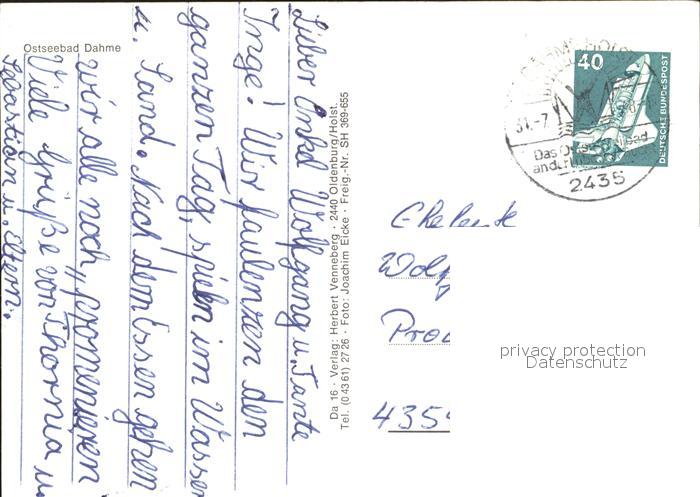 Ostseebad Dahme
Lieber Onkel Wolfgang u. Tante
Inge! Wir faulenzen den
ganzen Tag, spielen im Wasser
u. Sand. Nach dem Essen gehen
wir alle noch „promenieren
Viele Grüße von Thornia u.
Sebastian u. Eltern.
Da 16 · Verlag: Herbert Venneberg · 2440 Oldenburg/Holst.
Tel. (0 43 61) 27 26 · Foto: Joachim Eicke · Freig.-Nr. SH 369-655
40
DEUTSCHE BUNDESPOST
31.-7
2435
Eheleute
Wolf
435
privacy protection
Datenschutz